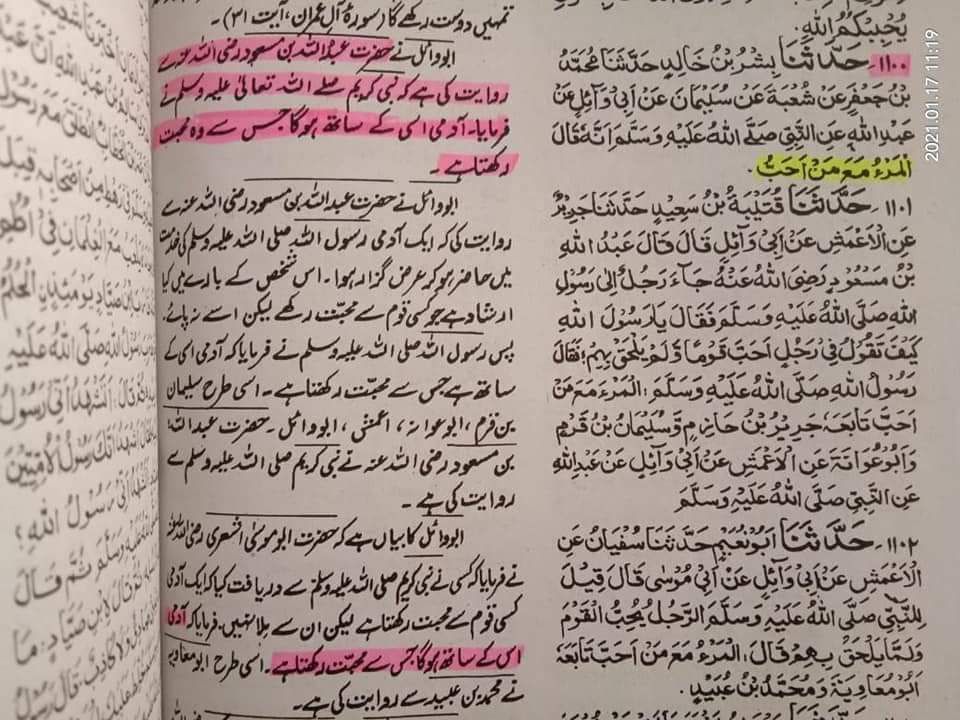 يُحْبِبْكُمُ اللهُ.
۱۱۰۰ـ حَدَّثَنَا بِشْرُ بْنُ خَالِدٍ حَدَّثَنَا مُحَمَّدُ
بْنُ جَعْفَرٍ عَنْ شُعْبَةَ عَنْ سُلَيْمَانَ عَنْ أَبِي وَائِلٍ عَنْ
عَبْدِ اللهِ عَنِ النَّبِيِّ صَلَّى اللهُ عَلَيْهِ وَسَلَّمَ أَنَّهُ قَالَ
اَلْمَرْءُ مَعَ مَنْ أَحَبَّ.
۱۱۰۱ـ حَدَّثَنَا قُتَيْبَةُ بْنُ سَعِيدٍ حَدَّثَنَا جَرِيْرٌ
عَنِ الْاَعْمَشِ عَنْ أَبِي وَآئِلٍ قَالَ قَالَ عَبْدُ اللهِ
بْنُ مَسْعُوْدٍ رَضِيَ اللهُ عَنْهُ جَآءَ رَجُلٌ إِلَى رَسُوْلِ
اللهِ صَلَّى اللهُ عَلَيْهِ وَسَلَّمَ فَقَالَ يَا رَسُوْلَ اللهِ
كَيْفَ تَقُوْلُ فِيْ رَجُلٍ أَحَبَّ قَوْمًا وَلَمْ يَلْحَقْ بِهِمْ؟ فَقَالَ
رَسُوْلُ اللهِ صَلَّى اللهُ عَلَيْهِ وَسَلَّمَ، اَلْمَرْءُ مَعَ مَنْ
أَحَبَّ تَابَعَهُ جَرِيْرُ بْنُ حَازِمٍ وَّسُلَيْمَانُ بْنُ قَرْمٍ
وَأَبُوْعَوَانَةَ عَنِ الْاَعْمَشِ عَنْ أَبِي وَآئِلٍ عَنْ عَبْدِ اللهِ
عَنِ النَّبِيِّ صَلَّى اللهُ عَلَيْهِ وَسَلَّمَ
۱۱۰۲ـ حَدَّثَنَا أَبُوْنُعَيْمٍ حَدَّثَنَا سُفْيَانُ عَنِ
الْاَعْمَشِ عَنْ أَبِي وَآئِلٍ عَنْ أَبِي مُوْسَى قَالَ قِيْلَ
لِلنَّبِيِّ صَلَّى اللهُ عَلَيْهِ وَسَلَّمَ الرَّجُلُ يُحِبُّ الْقَوْمَ
وَلَمَّا يَلْحَقْ بِهِمْ قَالَ، اَلْمَرْءُ مَعَ مَنْ أَحَبَّ تَابَعَهُ
أَبُوْ مُعَاوِيَةَ وَمُحَمَّدُ بْنُ عُبَيْدٍ.
تمہیں دوست رکھے گا (سورۂ آلِ عمران، آیت ۳۱)۔
ابو وائل نے حضرت عبداللہ بن مسعود رضی اللہ عنہ سے
روایت کی ہے کہ نبی کریم صلے اللہ تعالیٰ علیہ وسلم نے
فرمایا۔ آدمی اسی کے ساتھ ہوگا جس سے وہ محبت
رکھتا ہے۔
ابو وائل نے حضرت عبداللہ بن مسعود رضی اللہ عنہ سے
روایت کی کہ ایک آدمی رسول اللہ صلی اللہ علیہ وسلم کی خدمت
میں حاضر ہو کر عرض گزار ہوا۔ اس شخص کے بارے میں کیا
ارشاد ہے جو کسی قوم سے محبّت رکھے لیکن اسے نہ پائے
پس رسول اللہ صلی اللہ علیہ وسلم نے فرمایا کہ آدمی اسی کے
ساتھ ہے جس سے محبّت رکھتا ہے۔ اسی طرح سلیمان
بن قرم، ابو عوانہ، اعمش، ابو وائل۔ حضرت عبداللہ
بن مسعود رضی اللہ عنہ نے نبی کریم صلی اللہ علیہ وسلم سے
روایت کی ہے۔
ابو وائل کا بیان ہے کہ حضرت ابو موسیٰ اشعری رضی اللہ عنہ
نے فرمایا کہ کسی نے نبی کریم صلی اللہ علیہ وسلم سے دریافت کیا کہ ایک آدمی
کسی قوم سے محبت رکھتا ہے لیکن ان سے ملا نہیں۔ فرمایا کہ آدمی
اس کے ساتھ ہوگا جس سے محبّت رکھتا ہے۔ اسی طرح ابو معاویہ
نے محمد بن عبید سے روایت کی ہے۔
2021.01.17 11:19